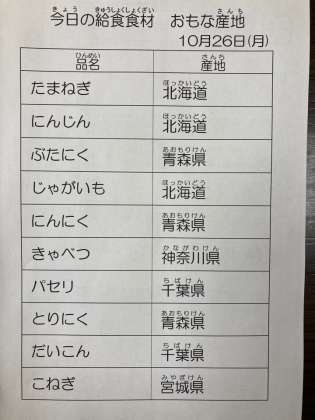 今日の給食食材 おもな産地
10月26日(月)
品名 産地
たまねぎ 北海道
にんじん 北海道
ぶたにく 青森県
じゃがいも 北海道
にんにく 青森県
きゃべつ 神奈川県
パセリ 千葉県
とりにく 青森県
だいこん 千葉県
こねぎ 宮城県